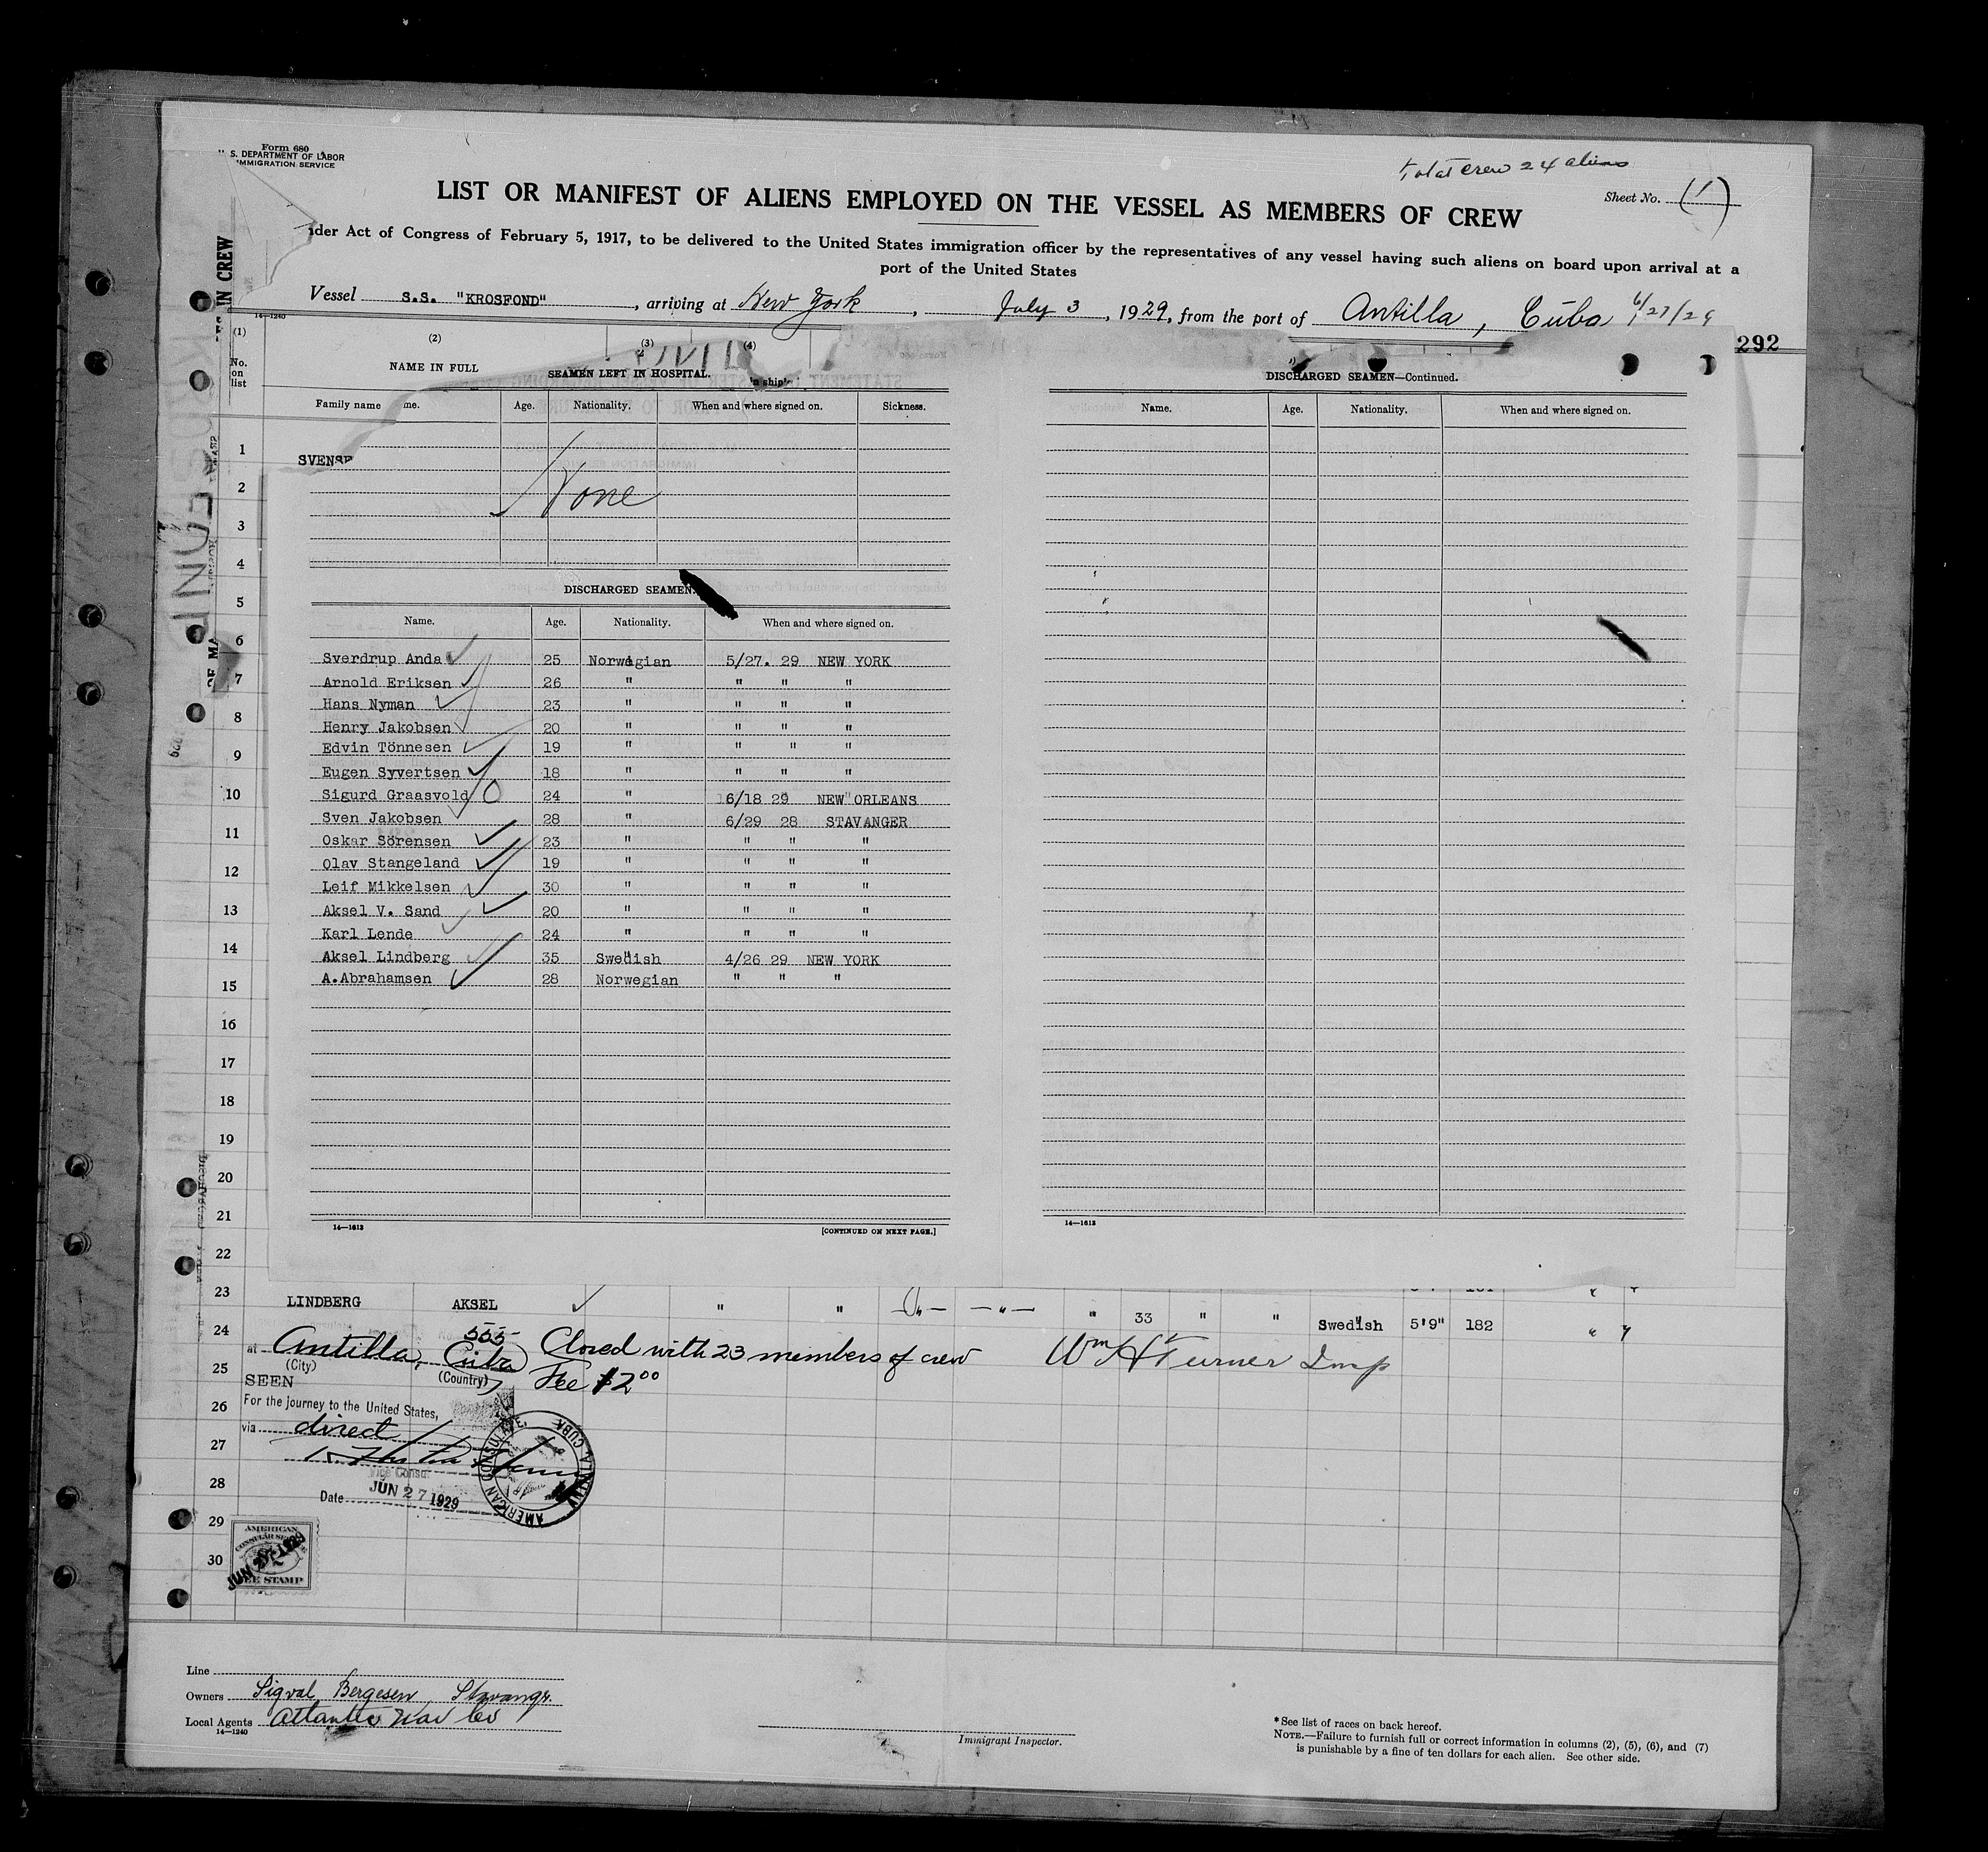 Form 680
S. DEPARTMENT OF LABOR
IMMIGRATION SERVICE
Total crew 24 aliens
Sheet No. (1)
LIST OR MANIFEST OF ALIENS EMPLOYED ON THE VESSEL AS MEMBERS OF CREW
der Act of Congress of February 5, 1917, to be delivered to the United States immigration officer by the representatives of any vessel having such aliens on board upon arrival at a
port of the United States
Vessel S.S. "KROSFOND", arriving at New York, July 3, 1929, from the port of Antilla, Cuba 6/27/29
14—1240
292
IN CREW
(1) (2) (3) (4)
No. on list
NAME IN FULL
Family name me.
SEAMEN LEFT IN HOSPITAL.
Age. Nationality. When and where signed on. Sickness.
SVENSE
None
DISCHARGED SEAMEN.
Name. Age. Nationality. When and where signed on.
Sverdrup Anda 25 Norwegian 5/27. 29 NEW YORK
Arnold Eriksen 26 " " " "
Hans Nyman 23 " " " "
Henry Jakobsen 20 " " " "
Edvin Tönnesen 19 " " " "
Eugen Syvertsen 18 " " " "
Sigurd Graasvold 24 " 6/18 29 NEW ORLEANS
Sven Jakobsen 28 " 6/29 28 STAVANGER
Oskar Sörensen 23 " " " "
Olav Stangeland 19 " " " "
Leif Mikkelsen 30 " " " "
Aksel V. Sand 20 " " " "
Karl Lende 24 " " " "
Aksel Lindberg 35 Swedish 4/26 29 NEW YORK
A.Abrahamsen 28 Norwegian " " "
14—1613
[CONTINUED ON NEXT PAGE.]
DISCHARGED SEAMEN—Continued.
Name. Age. Nationality. When and where signed on.
14—1613
1
2
3
4
5
6
7
8
9
10
11
12
13
14
15
16
17
18
19
20
21
22
23
24
25
26
27
28
29
30
LINDBERG AKSEL " " —"— —"— " 33 " " Swedish 5'9" 182 " "
555
at Antilla, Cuba Closed with 23 members of crew Wm H Turner Insp
(City) (Country) Fee $2.00
SEEN
For the journey to the United States,
via direct
Vice Consul
Date JUN 27 1929
AMERICAN CONSULATE, ANTILLA, CUBA
AMERICAN
CONSULAR SERVICE
JUN 27 1929
FEE STAMP
Line
Owners Sigval Bergesen, Stavanger.
Local Agents Atlantic Nav Co
14—1240
Immigrant Inspector.
* See list of races on back hereof.
NOTE.—Failure to furnish full or correct information in columns (2), (5), (6), and (7)
is punishable by a fine of ten dollars for each alien. See other side.